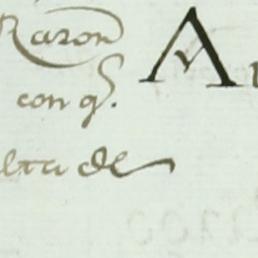 Razon
con q̃.
A
lta de